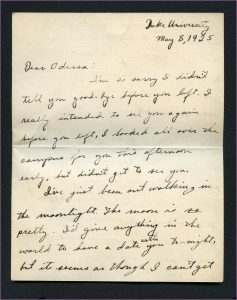 Duke University
May 8, 1925
Dear Odessa:
I'm so sorry I didn't
tell you good-bye before you left. I
really intended to see you again
before you left, I looked all over the
campus for you this afternoon
early, but didn't get to see you.
I've just been out walking in
the moonlight. The moon is so
pretty. I'd give anything in the
world to have a date with you to-night,
but it seems as though I can't get